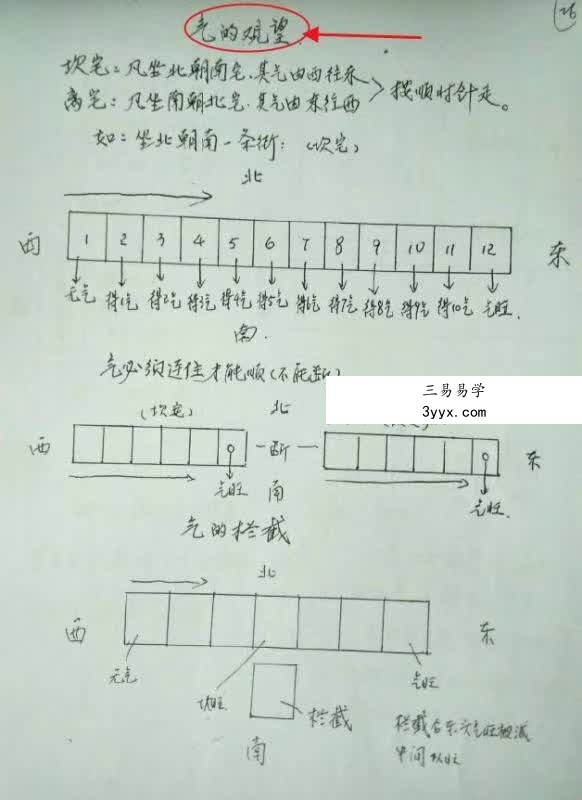 26
气的观望
坎宅:凡坐北朝南宅,其气由西往东
离宅:凡坐南朝北宅,其气由东往西
>按顺时针走。
如:坐北朝南一条街:(坎宅)
北
西 1 2 3 4 5 6 7 8 9 10 11 12 东
无气 得1气 得2气 得3气 得4气 得5气 得6气 得7气 得8气 得9气 得10气 气旺.
南.
气必须连住才能顺(不能断)
三易易学
3yyx.com
(坎宅) 北
西 断 东
气旺 南 气旺.
气的拦截
北
西 东
无气 气旺
拦截
南
拦截后东方气旺被减
中间